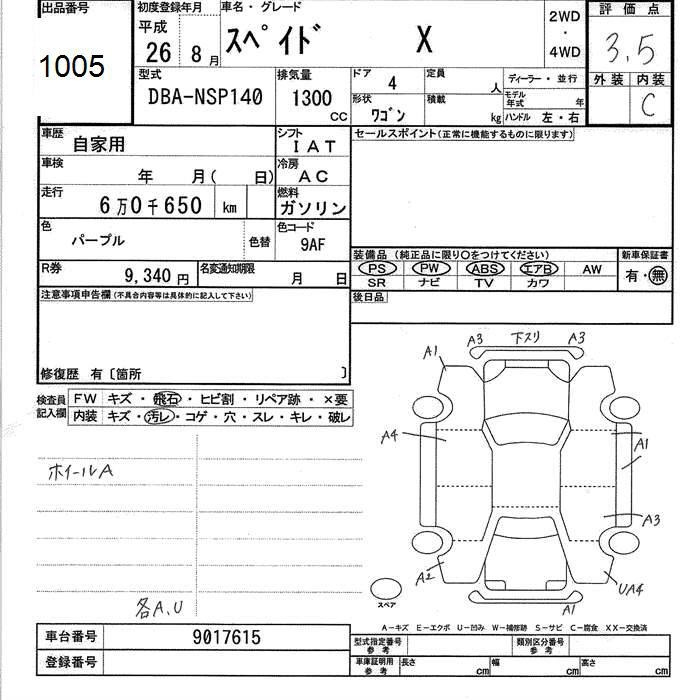 出品番号
1005
初度登録年月
平成
26 8月
車名・グレード
スペイド X
2WD
・
4WD
評価点
3.5
外装 内装
C
型式
DBA-NSP140
排気量
1300
CC
ドア 4
定員 人
ディーラー・並行
形状 ワゴン
積載 kg
モデル年式 年
ハンドル 左・右
車歴 自家用
シフト IAT
セールスポイント(正常に機能するものに限ります)
車検 年 月( 日)
冷房 AC
走行 6万0千650 km
燃料 ガソリン
色 パープル
色替
色コード 9AF
装備品 (純正品に限り○をつけてください)
新車保証書
PS PW ABS エアB AW
有・無
SR ナビ TV カワ
R券 9,340円
名変通知期限 月 日
後日品
注意事項申告欄(不具合内容等は具体的に記入して下さい)
修復歴 有〔箇所 〕
検査員記入欄
FW キズ・飛石・ヒビ割・リペア跡・×要
内装 キズ・汚レ・コゲ・穴・スレ・キレ・破レ
A3 下スリ A3
A1
A4
A1
ホイールA
A3
A2
UA4
スペア
A1
各A、U
A-キズ E-エクボ U-凹み W-補修跡 S-サビ C-腐食 XX-交換済
車台番号 9017615
型式指定番号 参考
類別区分番号 参考
登録番号
車庫証明用 参考
長さ cm
幅 cm
高さ cm